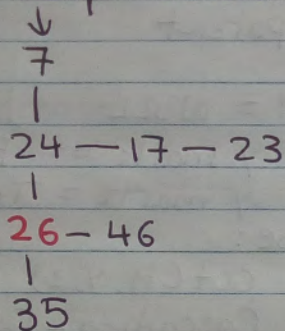 ↓
7
|
24 — 17 - 23
|
26 - 46
|
35